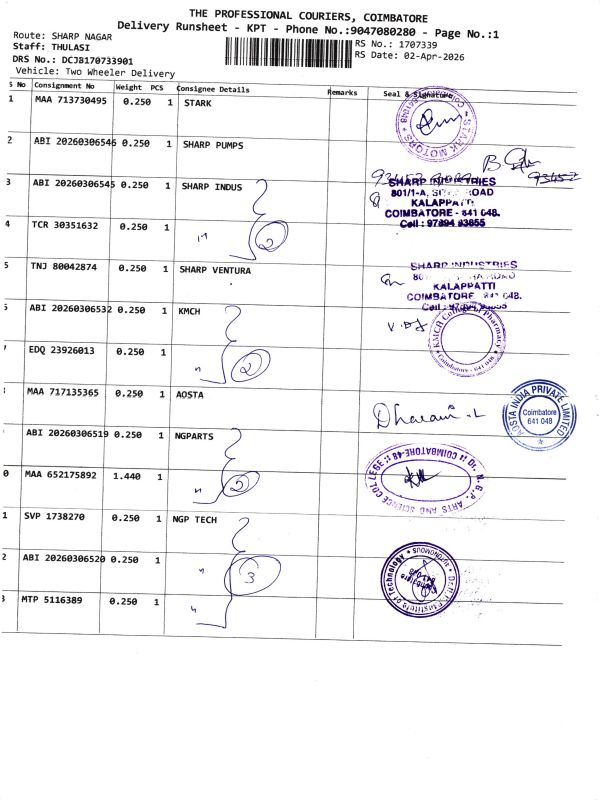 THE PROFESSIONAL COURIERS, COIMBATORE
Delivery Runsheet - KPT - Phone No.:9047080280 - Page No.:1
Route: SHARP NAGAR
RS No.: 1707339
Staff: THULASI
RS Date: 02-Apr-2026
DRS No.: DCJB170733901
Vehicle: Two Wheeler Delivery
S No Consignment No Weight PCS Consignee Details Remarks Seal & Signature
1 MAA 713730495 0.250 1 STARK
STARK MOTORS
2 ABI 20260306546 0.250 1 SHARP PUMPS
93457
3 ABI 20260306545 0.250 1 SHARP INDUS
SHARP INDUSTRIES
801/1-A, ROAD
KALAPPATTI
COIMBATORE - 641 048.
Cell : 97894 63655
4 TCR 30351632 0.250 1
2
5 TNJ 80042874 0.250 1 SHARP VENTURA
SHARP INDUSTRIES
KALAPPATTI
COIMBATORE 641 048.
6 ABI 20260306532 0.250 1 KMCH
KMCH College of Pharmacy
Coimbatore - 641 048
7 EDQ 23926013 0.250 1
2
8 MAA 717135365 0.250 1 AOSTA
Dharani .L
AOSTA INDIA PRIVATE LIMITED
Coimbatore
641 048
9 ABI 20260306519 0.250 1 NGPARTS
Dr. N.G.P. ARTS AND SCIENCE COLLEGE :: COIMBATORE-48
0 MAA 652175892 1.440 1
1 SVP 1738270 0.250 1 NGP TECH
2 ABI 20260306520 0.250 1
3
Institute of Technology
AUTONOMOUS
3 MTP 5116389 0.250 1